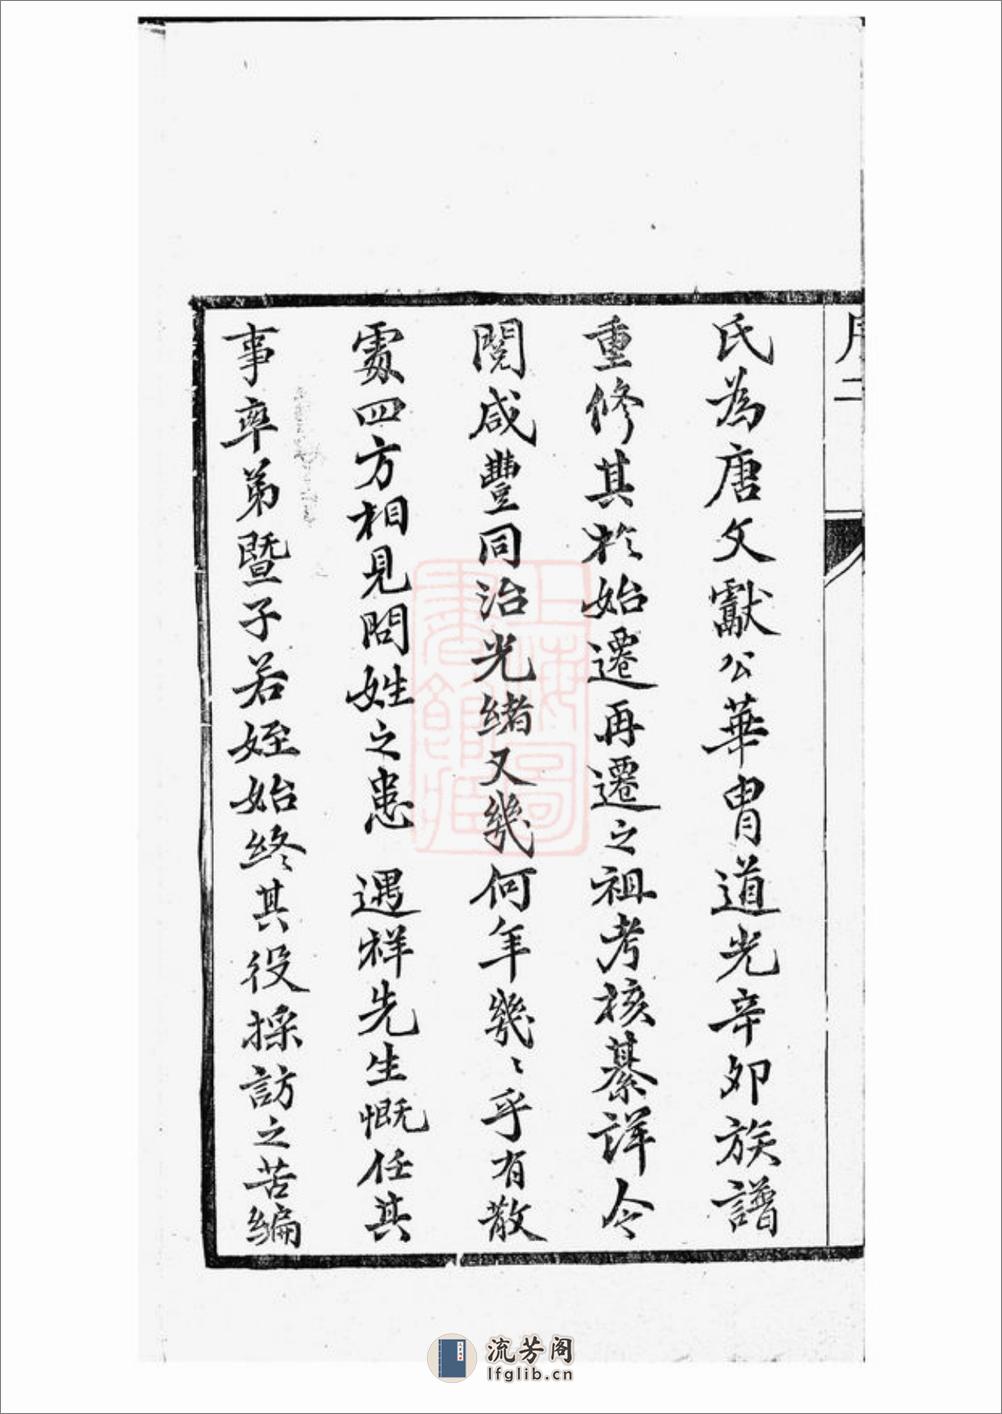 序二
氏為唐文獻公華冑道光辛卯族譜
重修其於始遷再遷之祖考核綦詳今
閱咸豐同治光緒又幾何年幾〻乎有散
處四方相見問姓之患遇祥先生慨任其
事率弟暨子若姪始終其役採訪之苦編
上海圖書館藏
流芳阁
lfglib.cn